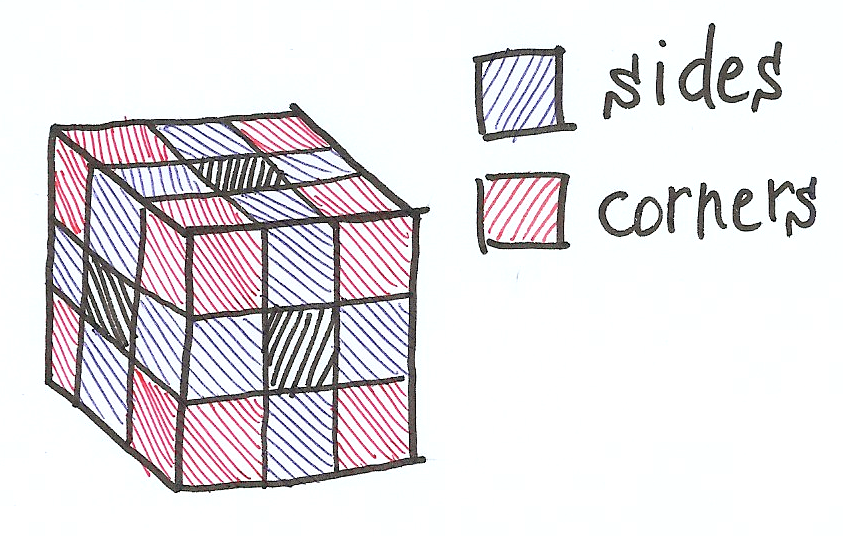 sides
corners